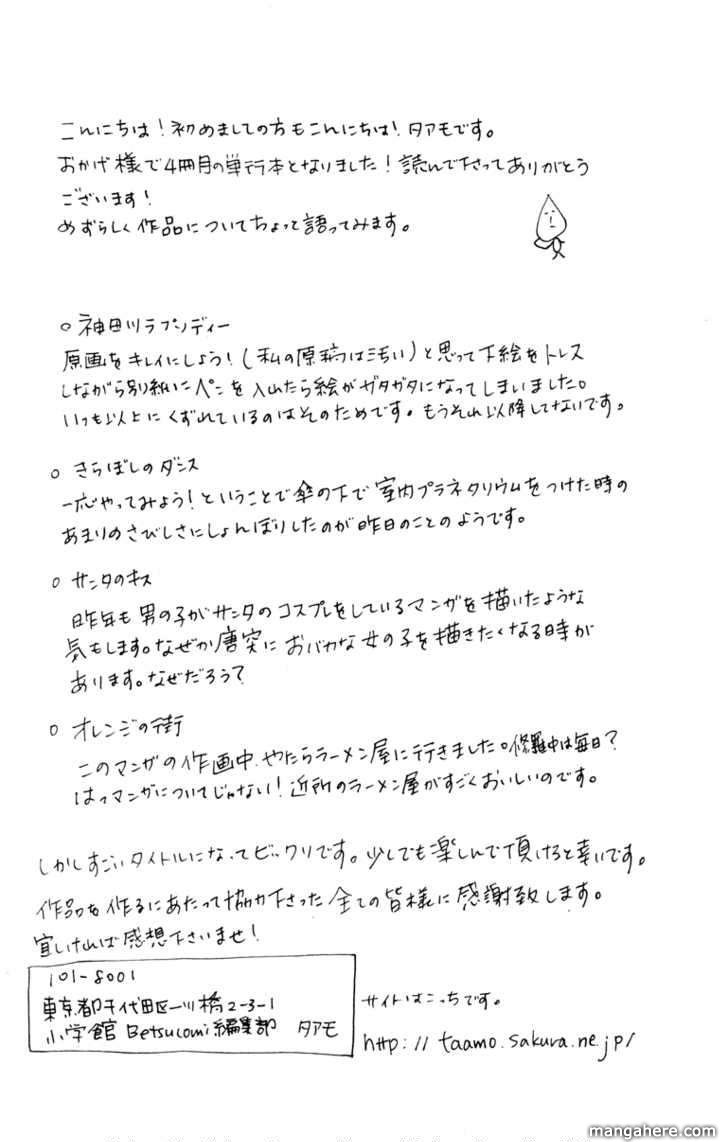 こんにちは！初めましての方もこんにちは！タアモです。
おかげ様で4冊目の単行本となりました！読んで下さってありがとう
ございます！
めずらしく作品についてちょっと語ってみます。
○ 神田川ラプンツェル
原画をキレイにしよう！(私の原稿はきたない)と思って下絵をトレス
しながら別紙にペンを入れたら絵がガタガタになってしまいました。
いつも以上にくずれているのはそのためです。もうそれ以降してないです。
○ きらぼしのダンス
一応やってみよう！ということで傘の下で室内プラネタリウムをつけた時の
あまりのさびしさにしょんぼりしたのが昨日のことのようです。
○ サンタのキス
昨年も男の子がサンタのコスプレをしているマンガを描いたような
気もします。なぜか唐突におバカな女の子を描きたくなる時が
あります。なぜだろう？
○ オレンジの街
このマンガの作画中、やたらラーメン屋に行きました。修羅中は毎日？
はっマンガについてじゃない！近所のラーメン屋がすごくおいしいのです。
しかしすごいタイトルになってビックリです。少しでも楽しんで頂けると幸いです。
作品を作るにあたって協力下さった全ての皆様に感謝致します。
宜しければ感想下さいませ！
101-8001
東京都千代田区一ツ橋2-3-1
小学館 Betsucomi編集部 タアモ
サイトはこっちです。
http://taamo.sakura.ne.jp/
mangahere.com